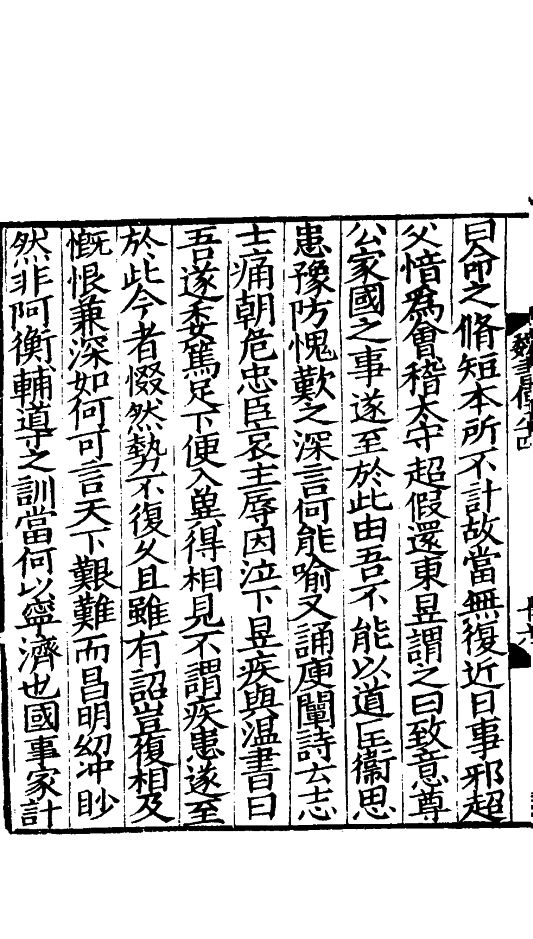 曰命之脩短本所不計故當無復近日事邪超
父愔為會稽太守超假還東昱謂之曰致意尊
公家國之事遂至於此由吾不能以道匡衞思
患豫防愧歎之深言何能喻又誦庾闡詩云志
士痛朝危忠臣哀主辱因泣下昱疾與温書曰
吾遂委篤足下便入兾得相見不謂疾患遂至
於此今者惙然勢不復久且雖有詔豈復相及
慨恨兼深如何可言天下艱難而昌明㓜冲眇
然非阿衡輔導之訓當何以寧濟也國事家計